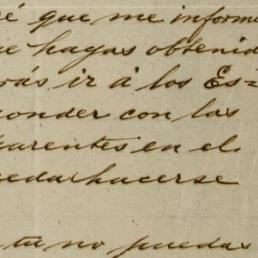 é que me informe
ue hagas obtenid
rás ir á los Es=
ponder con las
parentes en el
ueda hacerse
tu no puedas